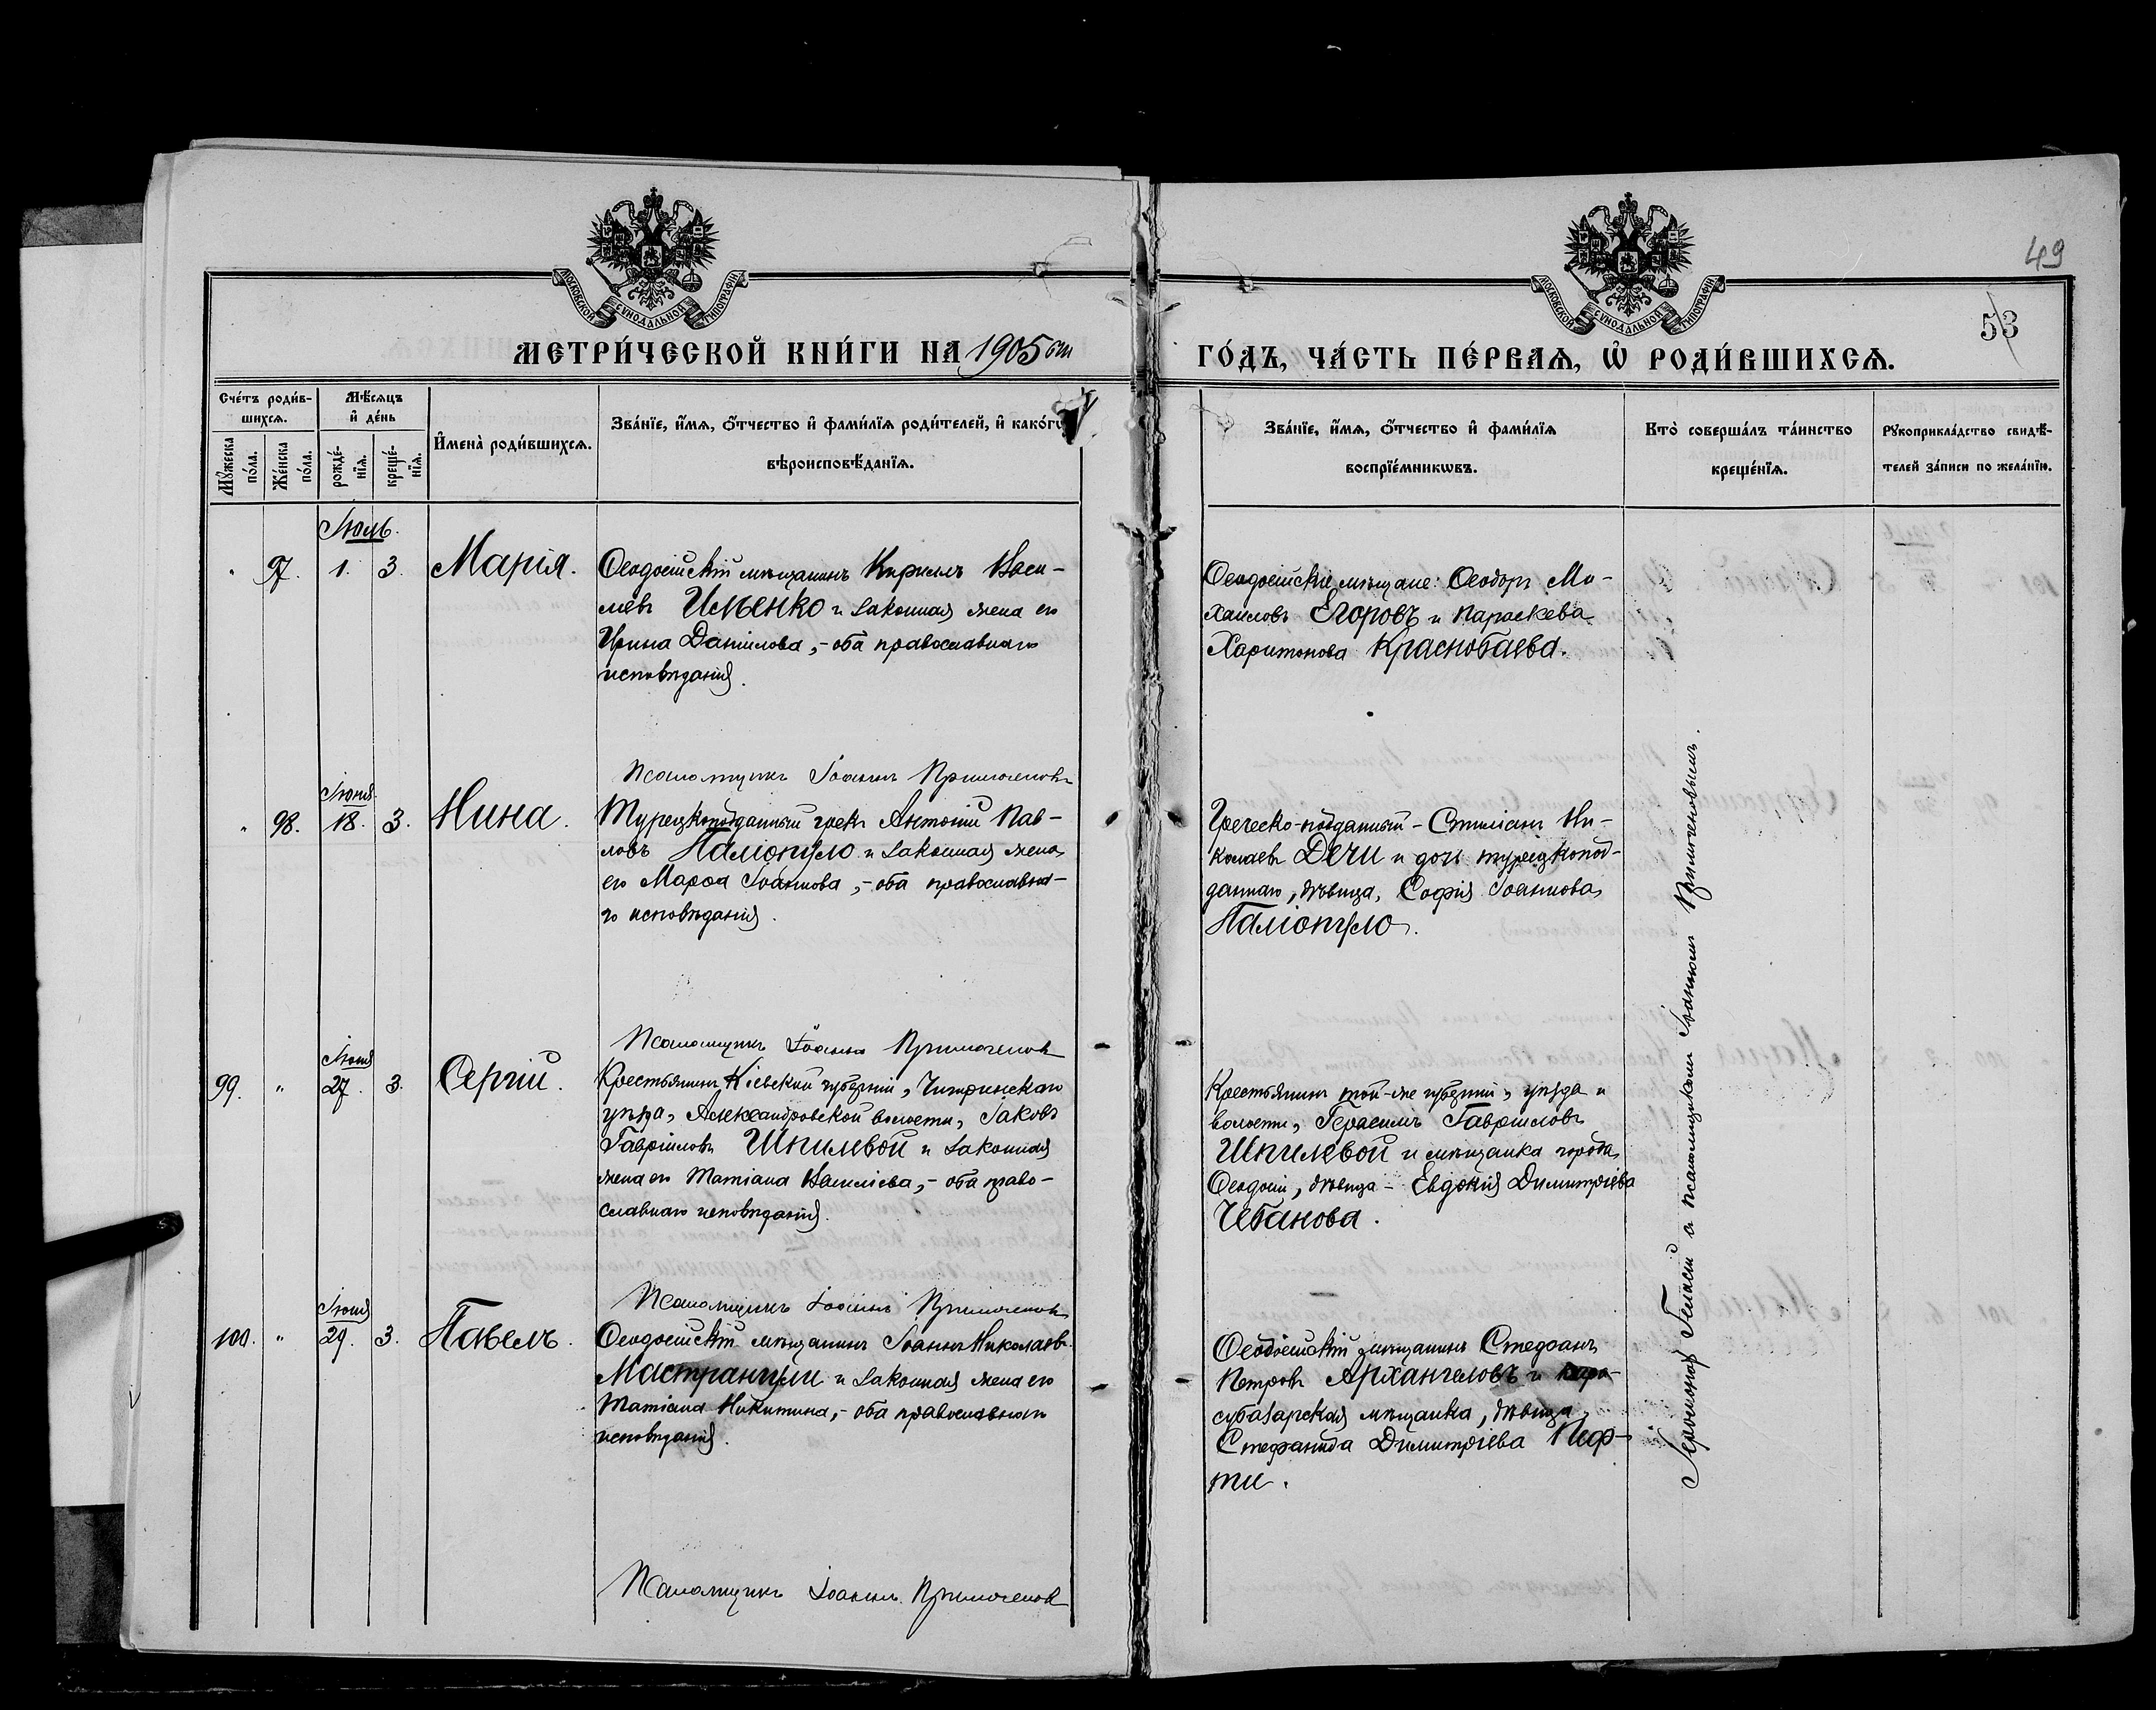 49
53
МОСКОВСКОЙ СУНОДАЛЬНОЙ ТИПОГРАФІИ
МОСКОВСКОЙ СУНОДАЛЬНОЙ ТИПОГРАФІИ
МЕТРИ́ЧЕСКОЙ КНИ́ГИ НА 1905 ый
ГО́ДЪ, ЧА́СТЬ ПЕ́РВАЯ, Ѡ҆ РОДИ́ВШИХСЯ.
Сче́тъ роди́в-
шихся.
Мѣ́сяцъ
и҆ де́нь
Му́жеска по́ла.
Же́нска по́ла.
рожде́-нїя.
креще́-нїя.
И҆мена̀ роди́вшихся.
Зва́нїе, и҆́мя, ѻ҆́тчество и҆ фами́лїя роди́телей, и҆ како́гѡ
вѣроисповѣ́данїя.
Зва́нїе, и҆́мя, ѻ҆́тчество и҆ фами́лїя
воспрїе́мникѡвъ.
Кто̀ соверша́лъ та́инство
креще́нїя.
Рꙋкоприкла́дство свидѣ́-
телей за́писи по жела́нїю.
Іюль.
" 97. 1. 3. Марія.
Ѳеодосійскій мѣщанинъ Кириллъ Васи-
льевъ Ильенко и законная жена его
Ирина Даніилова, - оба православнаго
исповѣданія.
Ѳеодосійскіе мѣщане: Ѳеодоръ Ми-
хаиловъ Егоровъ и Параскева
Харитонова Краснобаева.
Псаломщикъ Іоаннъ Примоченовъ
Іюня
" 98. 18. 3. Нина.
Турецкоподданный грекъ Антоній Пав-
ловъ Паліопуло и законная жена
его Марѳа Іоаннова, - оба православна-
го исповѣданія.
Греческо-подданный - Стиліанъ Ни-
колаевъ Дечи и дочь турецкопод-
даннаго, дѣвица, Софія Іоаннова
Паліопуло.
Псаломщикъ Іоаннъ Примоченовъ
Іюня
99. " 27. 3. Сергій.
Крестьянинъ Кіевской губерніи, Чигиринскаго
уѣзда, Александровской волости, Іаковъ
Гавріиловъ Шпилевой и законная
жена его Татіана Василіева, - оба право-
славнаго исповѣданія.
Крестьянинъ той-же губерніи, уѣзда и
волости, Герасимъ Гавріиловъ
Шпилевой и мѣщанка города
Ѳеодосіи, дѣвица - Евдокія Димитріева
Чебанова.
Псаломщикъ Іоаннъ Примоченовъ
Іюня
100. " 29. 3. Павелъ.
Ѳеодосійскій мѣщанинъ Іоаннъ Николаевъ
Мастрангули и законная жена его
Татіана Никитина, - оба православнаго
исповѣданія.
Ѳеодосійскій мѣщанинъ Стефанъ
Петровъ Архангеловъ и Кара-
субазарская мѣщанка, дѣвица
Стефанида Димитріева Пеф-
ти.
Псаломщикъ Іоаннъ Примоченовъ
Іеромонахъ Геласій съ псаломщикомъ Іоанномъ Примоченовымъ.